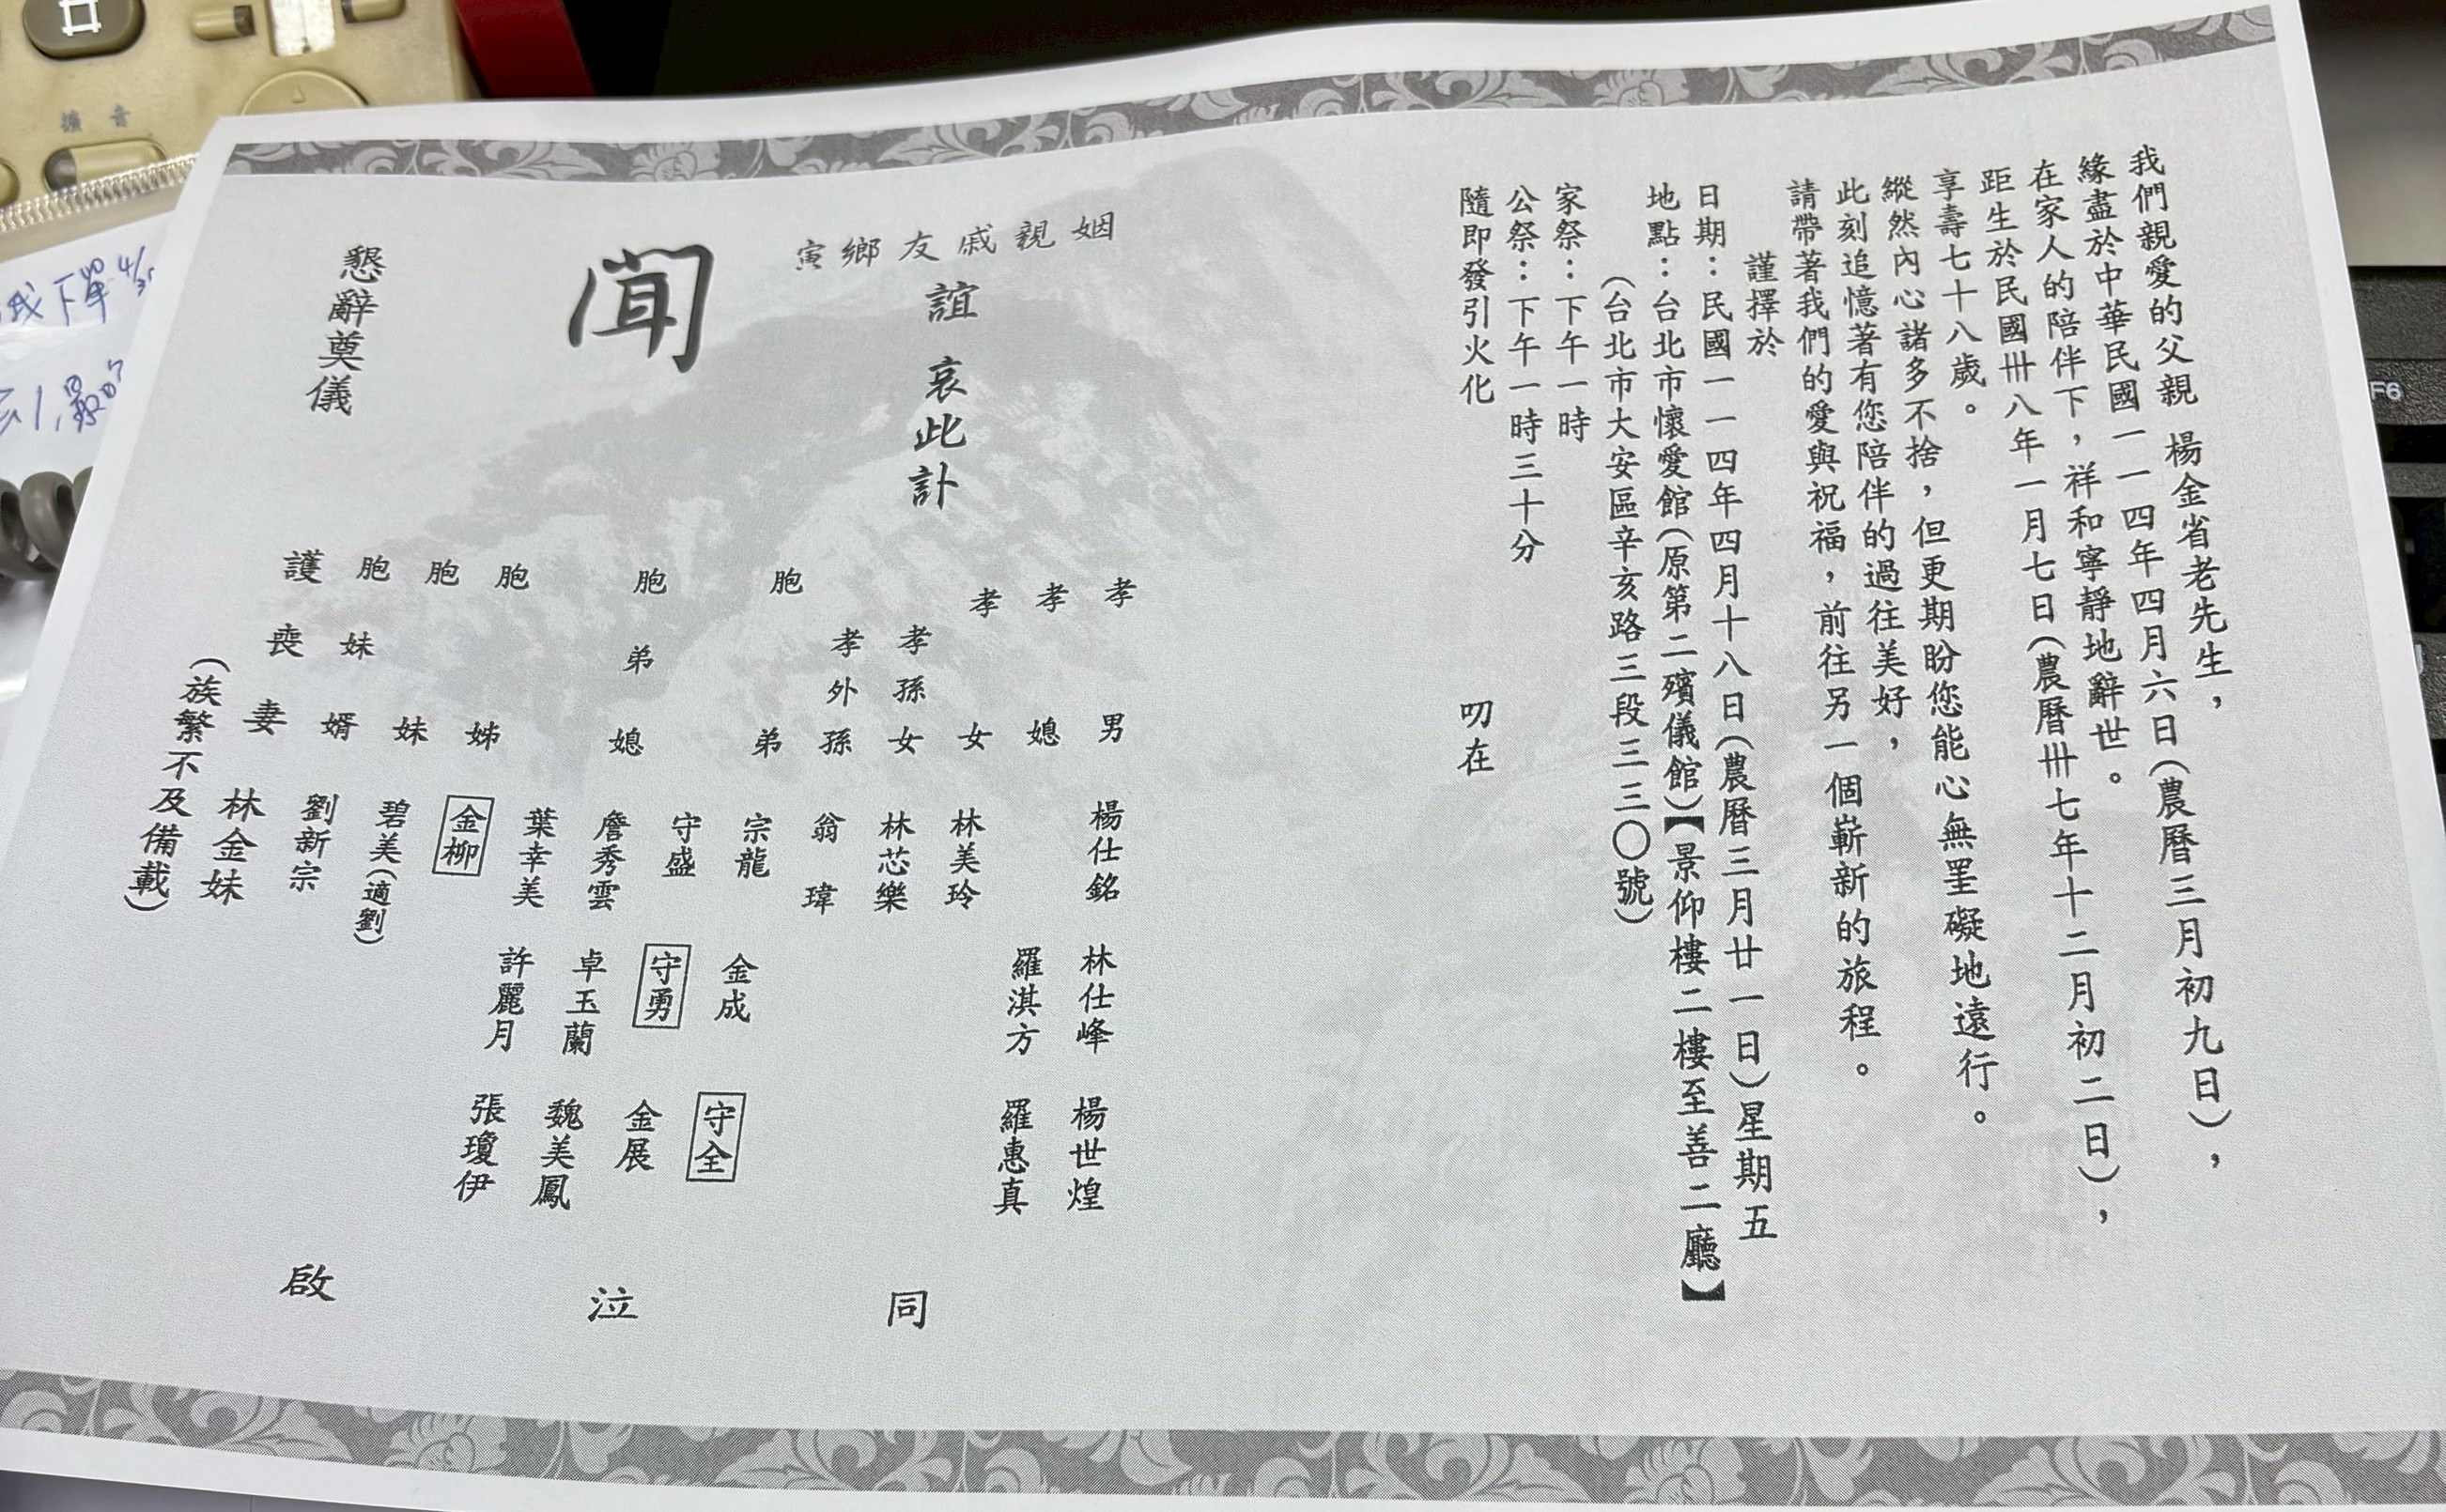 我們親愛的父親 楊金省老先生，
緣盡於中華民國一一四年四月六日(農曆三月初九日)，
在家人的陪伴下，祥和寧靜地辭世。
距生於民國卅八年一月七日(農曆卅七年十二月初二日)，
享壽七十八歲。
縱然內心諸多不捨，但更期盼您能心無罣礙地遠行。
此刻追憶著有您陪伴的過往美好，
請帶著我們的愛與祝福，前往另一個嶄新的旅程。
謹擇於
日期：民國一一四年四月十八日(農曆三月廿一日)星期五
地點：台北市懷愛館(原第二殯儀館)【景仰樓二樓至善二廳】
(台北市大安區辛亥路三段三三〇號)
家祭：下午一時
公祭：下午一時三十分
隨即發引火化 叨在
姻親戚友鄉寅
誼 哀此訃
聞
懇辭奠儀
孝男 楊仕銘 林仕峰 楊世煌
孝媳 羅淇方 羅惠真
孝女 林美玲
孝孫女 林芯樂
孝外孫 翁瑋
胞弟 宗龍 金成 守全
守盛 守勇 金展
胞弟媳 詹秀雲 卓玉蘭 魏美鳳
葉幸美 許麗月 張瓊伊
胞姊 金柳
胞妹 碧美(適劉)
胞妹婿 劉新宗
護喪妻 林金妹
(族繁不及備載)
同泣啟
擴音
F6
下單